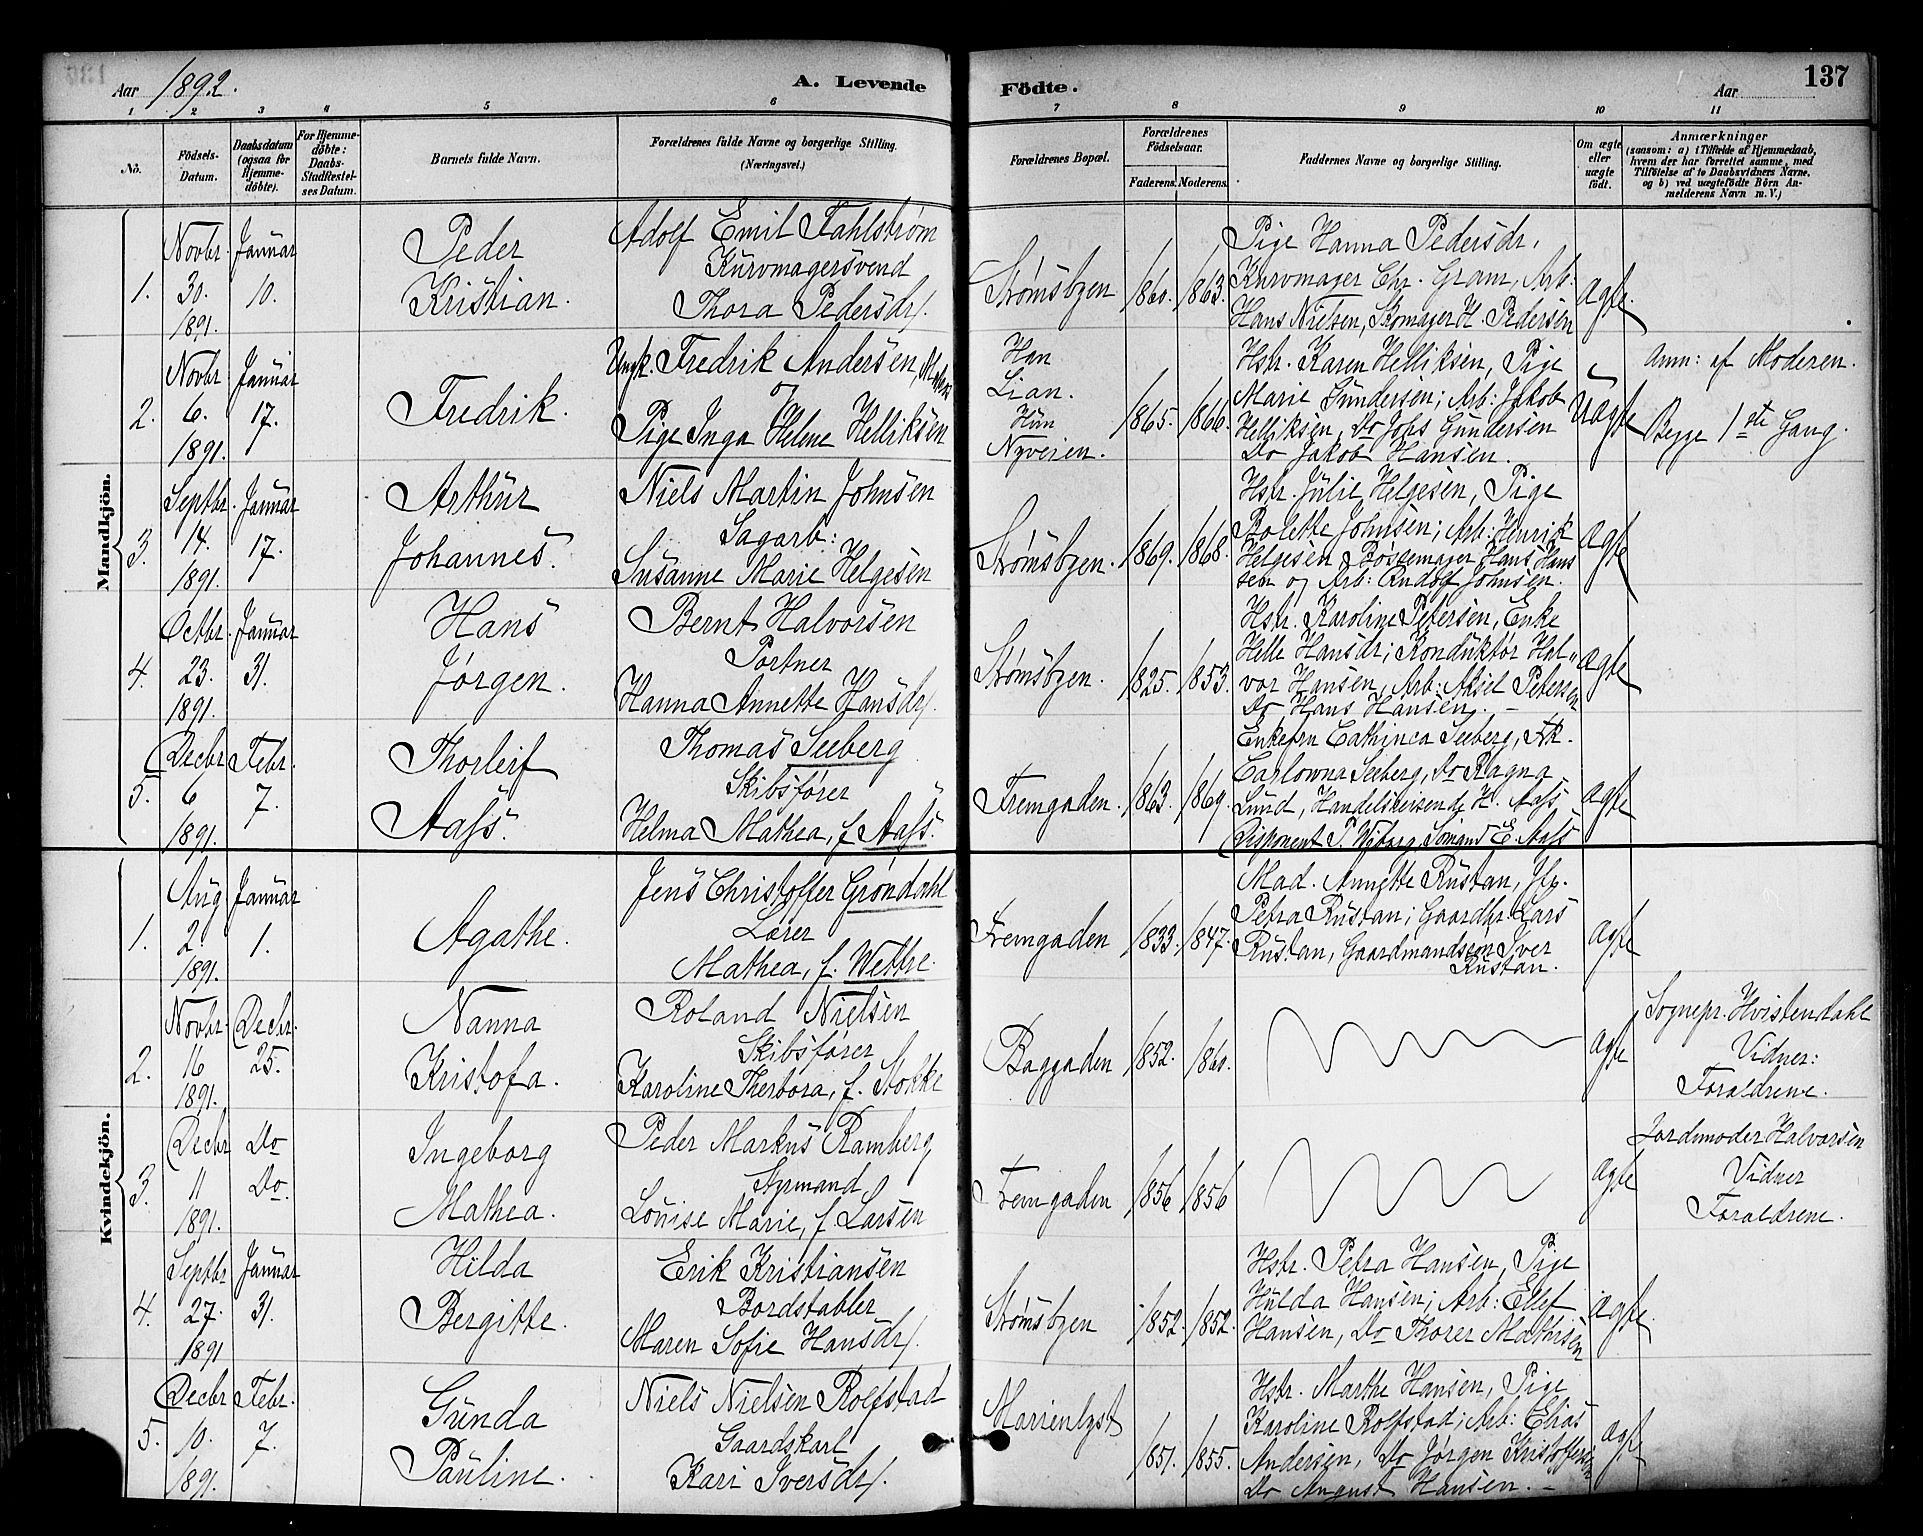 Aar 1892.
A. Levende Födte.
Aar
137
1 2 3 4 5 6 7 8 9 10 11
No.
Födsels-Datum.
Daabsdatum (ogsaa for Hjemme-döbte).
For Hjemme-döbte: Daabs-Stadfæstel-ses Datum.
Barnets fulde Navn.
Forældrenes fulde Navne og borgerlige Stilling. (Næringsvei.)
Forældrenes Bopæl.
Forældrenes Födselsaar.
Faderens. Moderens.
Faddernes Navne og borgerlige Stilling.
Om ægte eller uægte født.
Anmærkninger
(saasom: a) i Tilfælde af Hjemmedaab, hvem der har forrettet samme, med Tilföielse af to Daabsvidners Navne, og b) ved uægtefödte Börn An-melderens Navn m. V.)
Mandkjön.
1.
Novbr. 30. 1891.
Januar 10.
Peder Kristian.
Adolf Emil Fahlstrøm
Kurvmagersvend
Thora Pedersdr.
Strømsbyen
1860. 1863.
Pige Hanna Pedersdr,
Kurvmager Chr. Gram, Arb:
Hans Nielsen, Skomager H. Pedersen
Ægte.
2.
Novbr 6. 1891.
Januar 17.
Fredrik.
Ungk. Fredrik Andersen, Matros
og
Pige Inga Helene Helliksen
Han
Lian.
Hun
Nyveien.
1865. 1866.
Hstr. Karen Helliksen, Pige
Marie Gundersen; Arb: Jakob
Helliksen, Do Johs Gundersen
Do Jakob Hansen.
Uægte
Anm: af Moderen.
Begge 1ste Gang.
3.
Septbr. 14. 1891.
Januar 17.
Arthur Johannes.
Niels Martin Johnsen
Sagarb:
Susanne Marie Helgesen
Strømsbyen.
1869. 1868.
Hstr. Julie Helgesen, Pige
Rolette Johnsen; Arb: Henrik
Helgesen, Børstemager Hans Hans
sen og Arb: Rudolf Johnsen.
Ægte
4.
Octbr. 23. 1891.
Januar 31.
Hans Jørgen.
Bernt Halvorsen
Portner
Hanna Annette Hansdr.
Strømsbyen.
1825. 1853.
Hstr. Karoline Petersen, Enke
Helle Hansdr; Konduktør Hal-
vor Hansen, Arb: Aksel Petersen
Do Hans Hansen. –
Ægte
5.
Decbr 6 1891.
Febr. 7.
Thorleif Aass.
Thomas Seeberg
Skibsfører
Helma Mathea, f. Aass.
Fremgaden.
1863. 1869.
Enkefru Cathinca Seeberg, Frk.
Carlowna Seeberg, Do Ragna
Lund, Handelsreisende H. Aass,
Disponent P. Wiborg, Sømand E. Aass
Ægte
Kvindekjön.
1.
Aug 2. 1891.
Januar 1.
Agathe.
Jens Christoffer Grøndahl
Lærer
Mathea, f. Wettre.
Fremgaden
1833. 1847.
Mad. Annette Rustan, Jfr.
Petra Rustan; Gaardbr. Lars
Rustan, Gaardmandssøn Iver
Rustan.
Ægte
2.
Novbr. 16 1891.
Decbr. 25.
Nanna Kristofa.
Roland Nielsen
Skibsfører
Karoline Therbora, f. Stokke
Baggaden
1852. 1860.
Ægte
Sognepr. Hvistendahl
Vidner:
Forældrene.
3.
Decbr 11 1891.
Do Do.
Ingeborg Mathea.
Peder Markus Ramberg
Styrmand
Louise Marie, f. Larsen
Fremgaden
1856 1856
Ægte
Jordmoder Halvorsen
Vidner
Forældrene.
4.
Septbr 27. 1891
Januar 31.
Hilda Bergitte.
Erik Kristiansen
Bordstabler
Maren Sofie Hansdr.
Strømsbyen
1852. 1852.
Hstr. Petra Hansen, Pige
Hulda Hansen; Arb: Ellef
Hansen, Do Thorer Mathisen
Ægte.
5.
Decbr 10. 1891.
Febr. 7.
Gunda Pauline.
Niels Nielsen Rolfstad
Gaardskarl
Kari Iversdr.
Marienlyst
1851. 1855.
Hstr. Marthe Hansen, Pige
Karoline Rolfstad; Arb: Elias
Andersen, Do Jørgen Kristoffersen
Do August Hansen. –
Ægte